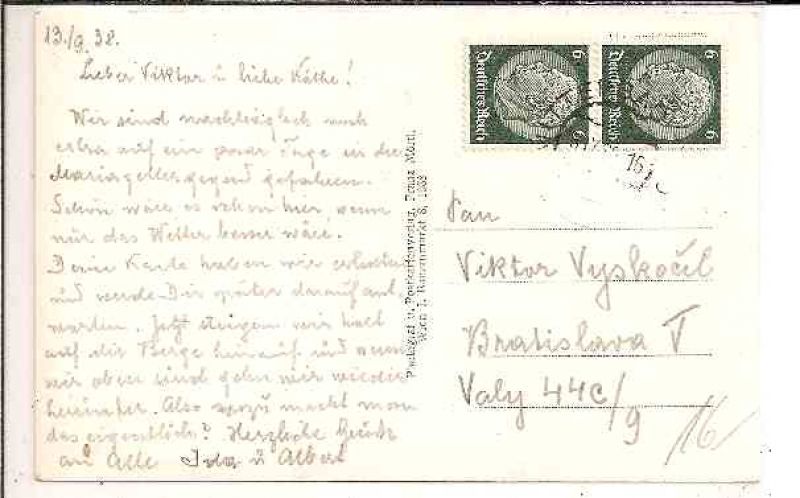 13./9.38.
Lieber Viktor u. liebe Käthe!
Wir sind nachträglich noch
extra auf ein paar Tage in die
Mariazellergegend gefahren.
Schön wäre es schon hier, wenn
nur das Wetter besser wäre.
Deine Karte haben wir erhalten
und werde Dir später darauf ant-
worten. Jetzt steigen wir halt
auf die Berge hinauf und wenn
wir oben sind gehn wir wieder
herunter. Also wozu macht man
das eigentlich? Herzliche Grüße
an Alle Ida u. Albert
Photograf. u. Postkartenverlag, Franz Mörtl,
Wien I, Bauernmarkt 8, 1938
6 Deutsches Reich 6
6 Deutsches Reich 6
Pan
Viktor Vyskočil
Bratislava I
Valy 44c/9
16